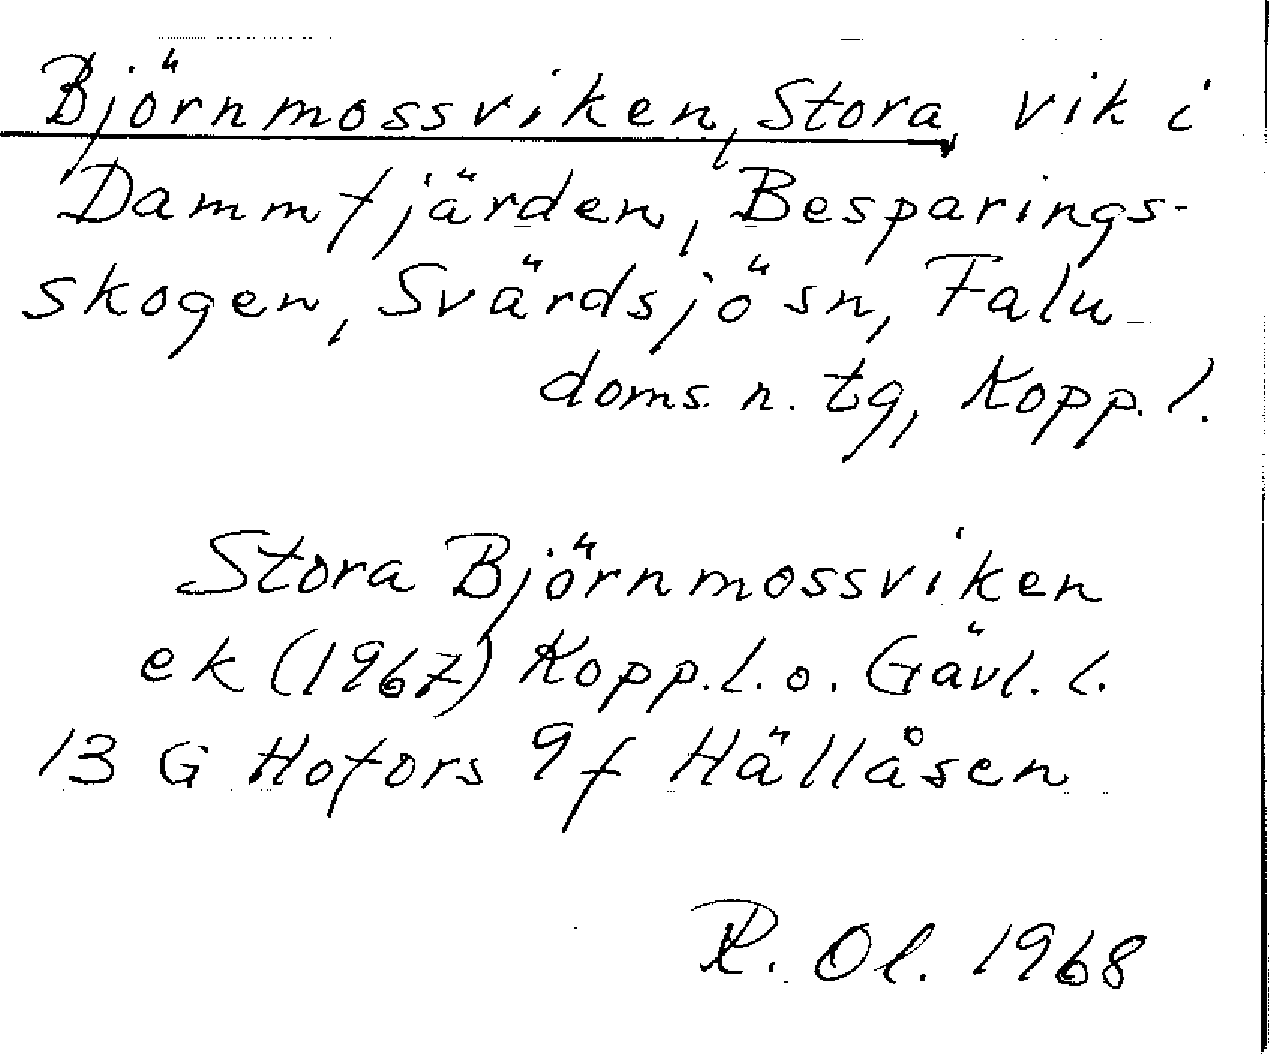 Björnmossviken, Stora, vik i
Dammfjärden, Besparings-
skogen, Svärdsjö sn, Falu
doms. n. tg, Kopp. l.
Stora Björnmossviken
ek (1967) Kopp. l. o. Gävl. l.
13 G Hofors 9 f Hällåsen
Ol. 1968